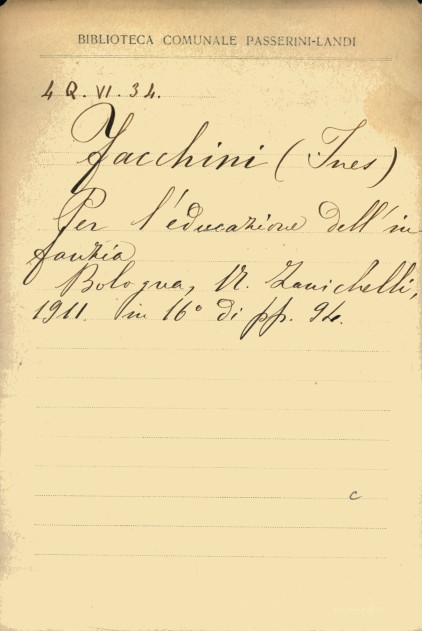 BIBLIOTECA COMUNALE PASSERINI-LANDI
4 Q. VI. 34.
Facchini (Ines)
Per l'educazione dell'in
fanzia
Bologna, N. Zanichelli,
1911. in 16° di pp. 94.
c